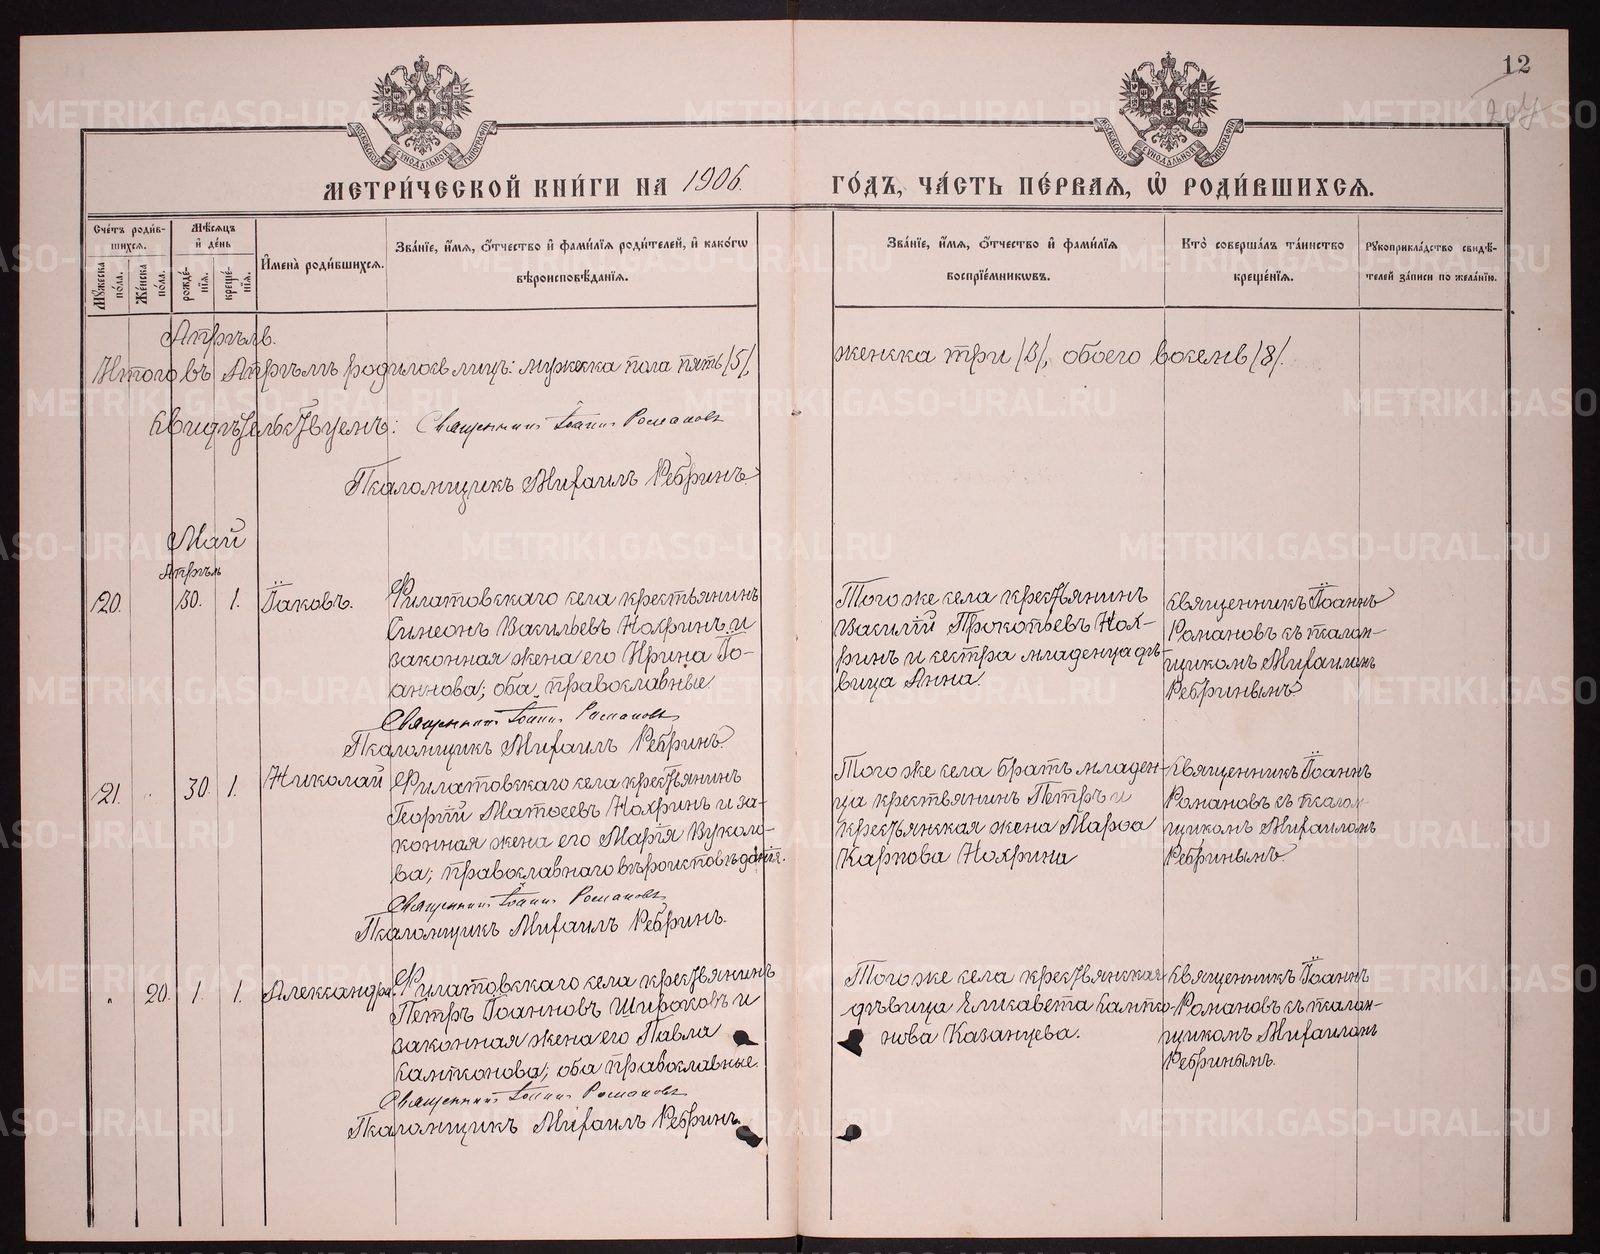 12
204
МЕТРИ́ЧЕСКОЙ КНИ́ГИ НА 1906.
ГО́ДЪ, ЧА́СТЬ ПЕ́РВАЯ, Ѡ҆ РОДИ́ВШИХСЯ.
Сче́тъ роди́в-
шихся.
Мѣ́сяцъ
и҆ де́нь
Му́жеска
по́ла.
Же́нска
по́ла.
рожде́-
нїя.
креще́-
нїя.
И҆мена̀ роди́вшихся.
Зва́нїе, и҆́мя, ѻ҆́тчество и҆ фами́лїя роди́телей, и҆ како́гѡ
вѣроисповѣ́данїя.
Зва́нїе, и҆́мя, ѻ҆́тчество и҆ фами́лїя
воспрїе́мникѡвъ.
Кто̀ соверша́лъ та́инство
креще́нїя.
Рукоприкла́дство свидѣ́-
телей за́писи по жела́нїю.
Апрѣль.
Итого въ Апрѣлѣ родилось лицъ: мужеска пола пять /5/,
женска три /3/, обоего восемь /8/.
Свидѣтельствуемъ: Священникъ Іоаннъ Романовъ
Псаломщикъ Михаилъ Ребринъ.
Май
Апрѣль
20. 30. 1. Іаковъ.
Филатовскаго села крестьянинъ
Симеонъ Васильевъ Нохринъ и
законная жена его Ирина Іо-
аннова; оба православные.
Священникъ Іоаннъ Романовъ
Псаломщикъ Михаилъ Ребринъ.
Того же села крестьянинъ
Василій Прокопьевъ Нох-
ринъ и сестра младенца дѣ-
вица Анна.
Священникъ Іоаннъ
Романовъ съ псалом-
щикомъ Михаиломъ
Ребринымъ
21. 30. 1. Николай
Филатовскаго села крестьянинъ
Георгій Матѳеевъ Нохринъ и за-
конная жена его Марія Вуколо-
ва; православнаго вѣроисповѣданія.
Священникъ Іоаннъ Романовъ
Псаломщикъ Михаилъ Ребринъ.
Того же села братъ младен-
ца крестьянинъ Петръ и
крестьянская жена Марѳа
Карпова Нохрина
Священникъ Іоаннъ
Романовъ съ псалом-
щикомъ Михаиломъ
Ребринымъ
20. 1. 1. Александра.
Филатовскаго села крестьянинъ
Петръ Іоанновъ Широковъ и
законная жена его Павла
Сампсонова; оба православные.
Священникъ Іоаннъ Романовъ
Псаломщикъ Михаилъ Ребринъ.
Того же села крестьянская
дѣвица Елисавета Сампсо-
нова Казанцева.
Священникъ Іоаннъ
Романовъ съ псалом-
щикомъ Михаиломъ
Ребринымъ.
METRIKI.GASO-URAL.RU